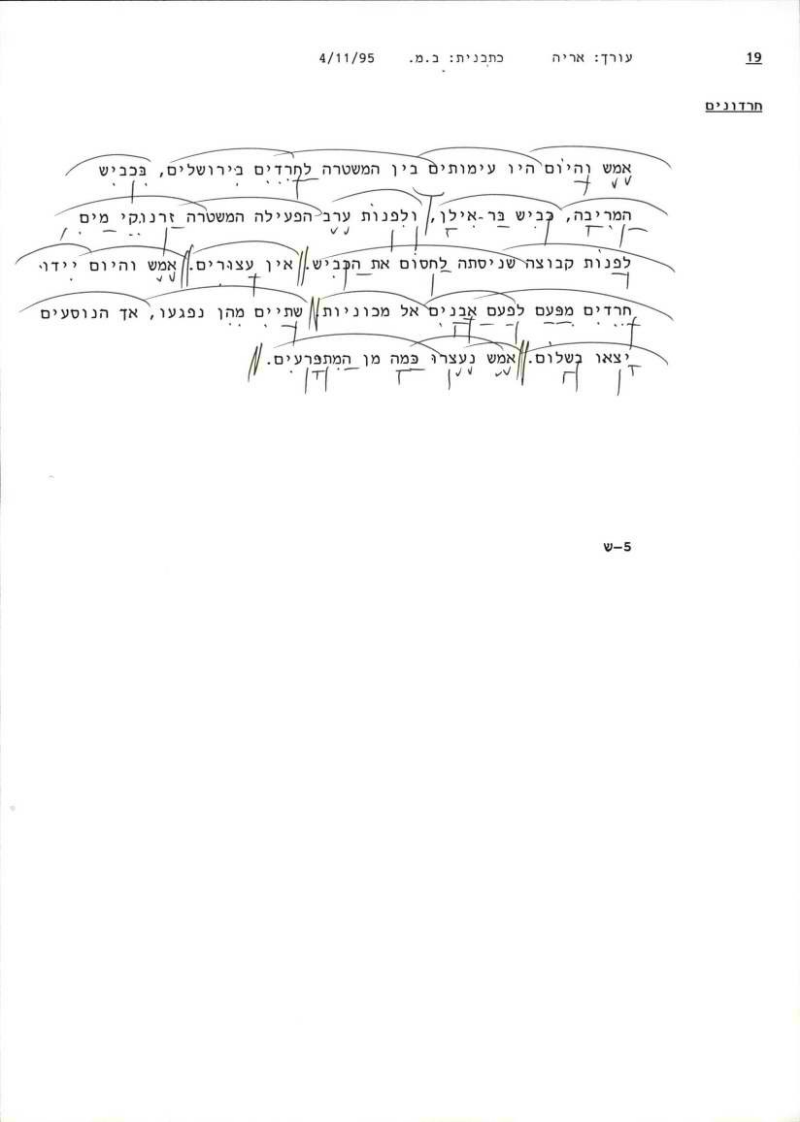 19 עורך: אריה כתבנית: ב.מ. 4/11/95
חרדונים
אמש והיום היו עימותים בין המשטרה לחרדים בירושלים, בכביש
המריבה, כביש בר-אילן, ולפנות ערב הפעילה המשטרה זרנוקי מים
לפנות קבוצה שניסתה לחסום את הכביש. אין עצורים. אמש והיום יידו
חרדים מפעם לפעם אבנים אל מכוניות. שתיים מהן נפגעו, אך הנוסעים
יצאו בשלום. אמש נעצרו כמה מן המתפרעים.
ש-5